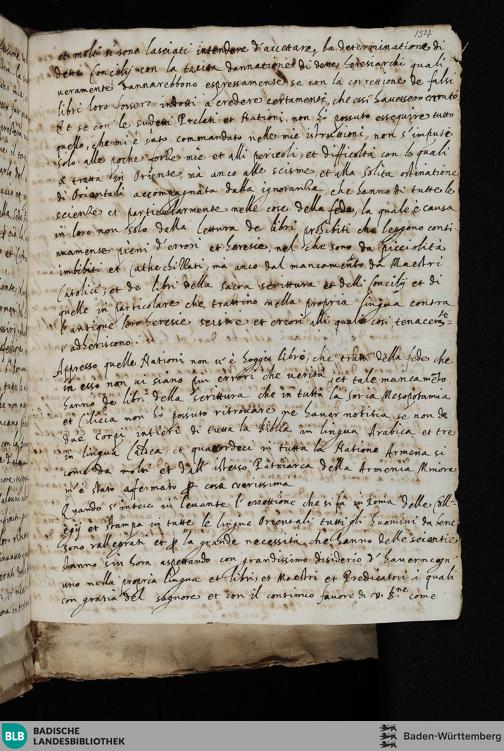 154
et molti si sono lasciati intendere d'accettare, la determinatione di
detti Concilij con la tacita dannatione di detti heresiarchi quali
veramente dannarebbono espressamente se con la correttione de falsi
libri loro fossero indotti a credere certamente, che essi havessero errato
Et se con le sudetti Prelati et Nationi, non ho possuto esseguire tutto
quello, che mi è stato commandato nelle mie istruttioni, non s'imputi
solo alle poche forze mie et alli pericoli, et difficoltà con le quali
si tratta in Oriente, ma anco alle scisme, et alla solita ostinatione
di Orientali accompagnata dalla ignoranza, che hanno di tutte le
scienze et particolarmente nelle cose della fede, la quale è causa
in loro non solo della lettura de libri prohibiti che leggono conti
nuamente pieni d'errori et heresie, nel che sono da piccolità
imbibiti et cathechillati, ma anco dal mancamento da Maestri
Catolici, et de libri della sacra scrittura et delli Concilij et di
quelle in particolare che trattino nella propria lingua contra
l'antique loro heresie scisme et errori alli quali così tenacemte
adheriscono.
Appresso quelle Nationi non v'è hoggi libro, che tratti della fede che
in esso non vi siano qui errori che verità, et tale mancamto
hanno de libri della scrittura che in tutta la Soria Mesopotamia
et Cilicia non ho possuto ritrovare ne haver notitia se non de
due Corpi intieri di tutta la Bibla in lingua Arabica et tre
in lingua Caldea et quattordeci in tutta la Natione Armena si
come da molti et dall'istesso Patriarca della Armenia Minore
m'è stato affermato p cosa verissima
Quando s'intese in levante l'errettione che si fa in Roma delle Coll-
egij et stampa in tutte le lingue Orientali tutti gli huomini da bene
sono rallegrati et p la grande necessità che hanno delle scientie
stanno sin hora aspettando con grandissimo disiderio d'haverne ogn'
uno nella propria lingua et libri, et Maestri et Predicatori i quali
con gratia del signore et con il continuo favore di V. Bne come
BLB
BADISCHE
LANDESBIBLIOTHEK
Baden-Württemberg